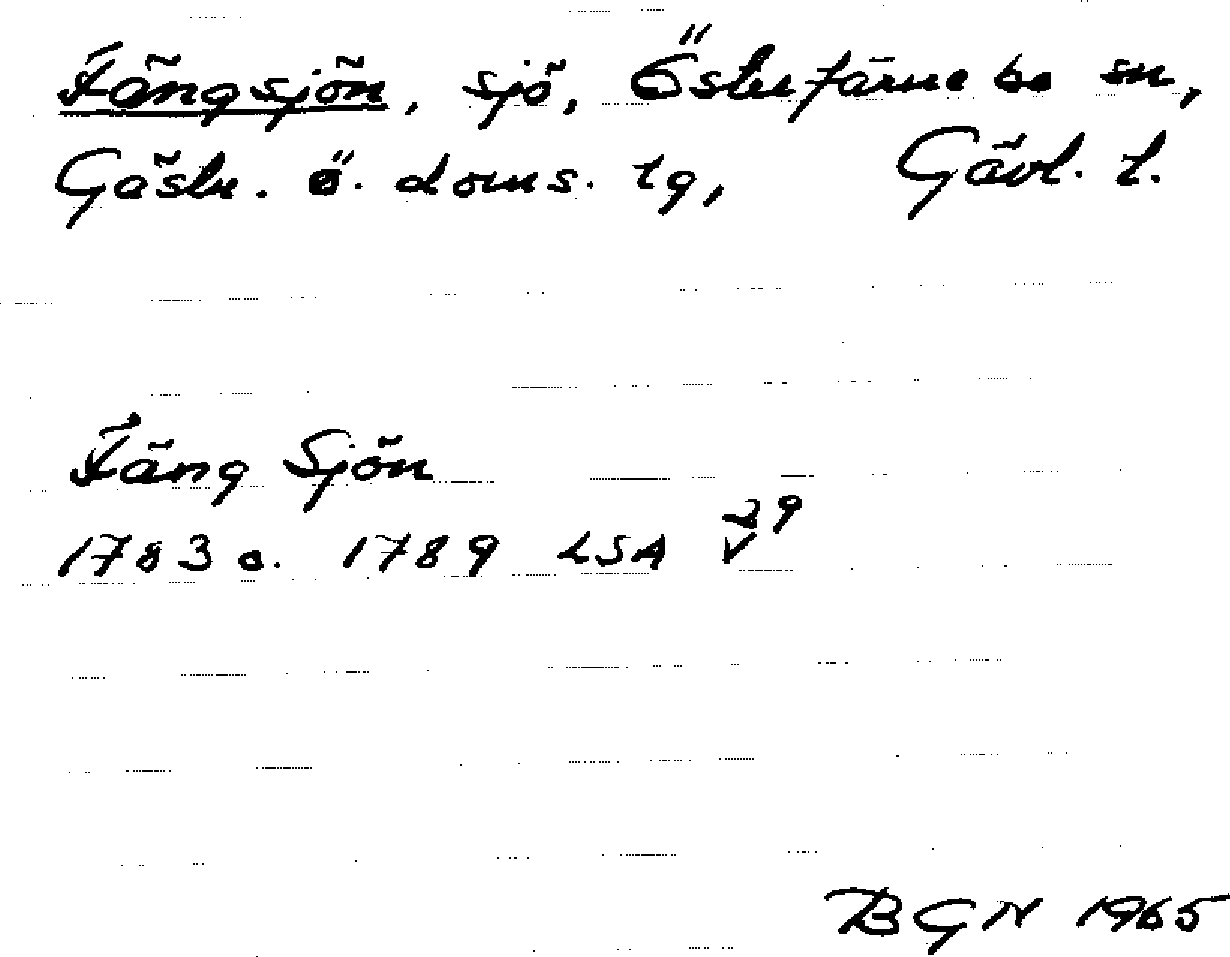 Fängsjön, sjö, Österfärnebo sn,
Gästr. ö. doms. tg, Gävl. l.
Fäng Sjön
1783 o. 1789 LSA V 29
BGN 1965